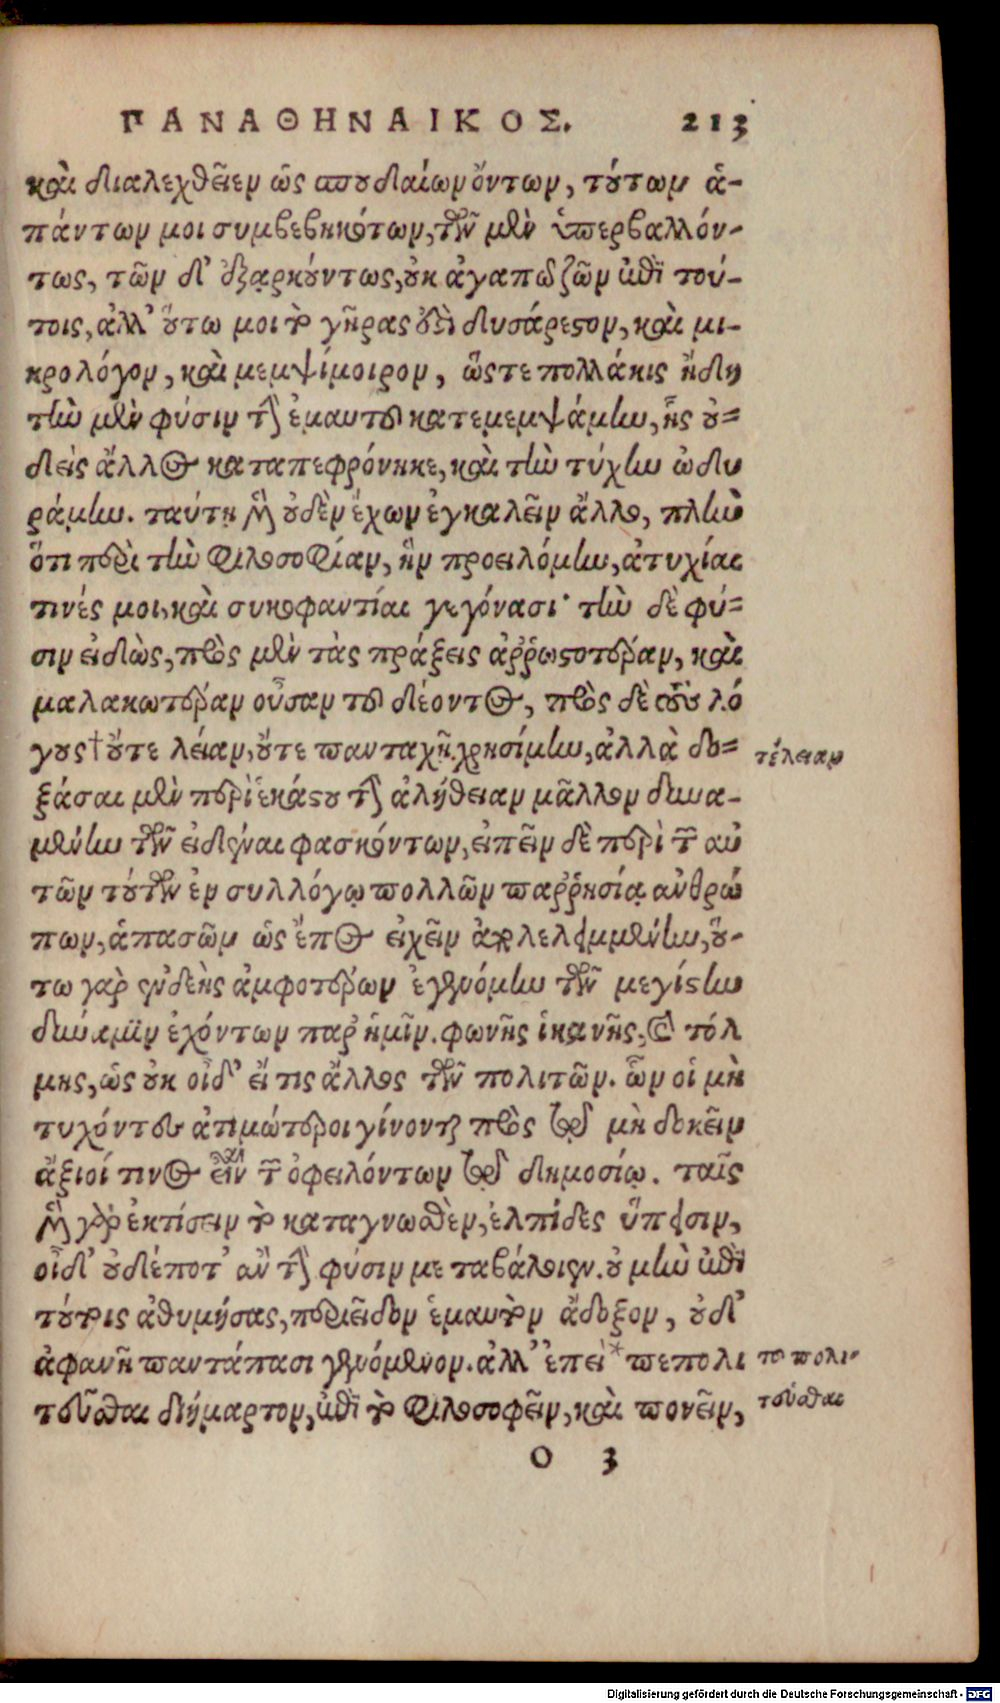 ΠΑΝΑΘΗΝΑΙΚΟΣ. 213
καὶ διαλεχθεῖεν ὡς σπουδαίων ὄντων, τούτων ἁ-
πάντων μοι συμβεβηκότων, τῶν μὲν ὑπερβαλλόν-
τως, τῶν δ' ἐξαρκούντως, οὐκ ἀγαπῶ ζῶν ἐπὶ τού-
τοις, ἀλλ' οὕτω μοι τὸ γῆρας ὅτι δυσάρεστον, καὶ μι-
κρολόγον, καὶ μεμψίμοιρον, ὥστε πολλάκις ἤδη
τὴν μὲν φύσιν τὴν ἐμαυτοῦ κατεμεμψάμην, ἧς οὐ=
δεὶς ἄλλος καταπεφρόνηκε, καὶ τὴν τύχην ὠδυ
ράμην. ταύτῃ μὲν οὐδὲν ἔχων ἐγκαλεῖν ἄλλο, πλὴν
ὅτι περὶ τὴν φιλοσοφίαν, ἣν προειλόμην, ἀτυχίαι
τινές μοι, καὶ συκοφαντίαι γεγόνασι· τὴν δὲ φύ=
σιν εἰδὼς, πρὸς μὲν τὰς πράξεις ἀῤῥωστοτέραν, καὶ
μαλακωτέραν οὖσαν τοῦ δέοντος, πρὸς δὲ τοὺς λό
γους† οὔτε λείαν, οὔτε πανταχῆ χρησίμην, ἀλλὰ δο=
ξάσαι μὲν περὶ ἑκάστου τὴν ἀλήθειαν μᾶλλον δυνα-
μένην τῶν εἰδέναι φασκόντων, εἰπεῖν δὲ περὶ τῶν αὐ
τῶν τούτων ἐν συλλόγῳ πολλῶν παῤῥησίᾳ ἀνθρώ
πων, ἁπασῶν ὡς ἔπος εἰχεῖν ἀπολελειμμένην, οὕ-
τω γὰρ ἐνδεὴς ἀμφοτέρων ἐγενόμην τῶν μεγίστην
δύναμιν ἐχόντων παρ' ἡμῖν. φωνῆς ἱκανῆς, καὶ τόλ
μης, ὡς οὐκ οἶδ' εἴ τις ἄλλος τῶν πολιτῶν. ὧν οἱ μὴ
τυχόντες ἀτιμώτεροι γίνονται πρὸς τὸ μὴ δοκεῖν
ἄξιοί τινος εἶναι τῶν ὀφειλόντων τῷ δημοσίῳ. ταῖς
μὲν γὰρ ἐκτίσειν τὸ καταγνωσθὲν, ἐλπίδες ὕπεισιν,
οἵδ' οὐδέποτ' ἂν τὴν φύσιν μεταβάλοιεν. οὐ μὴν ἐπὶ
τούτοις ἀθυμήσας, περιεῖδον ἐμαυτὸν ἄδοξον, οὐδ'
ἀφανῆ παντάπασι γενόμενον. ἀλλ' ἐπεὶ* πεπολι
τεῦσθαι διήμαρτον, ἐπὶ τὸ φιλοσοφεῖν, καὶ πονεῖν,
τέλειαν
το πολι-
τεύσθαι
O 3
Digitalisierung gefördert durch die Deutsche Forschungsgemeinschaft - DFG